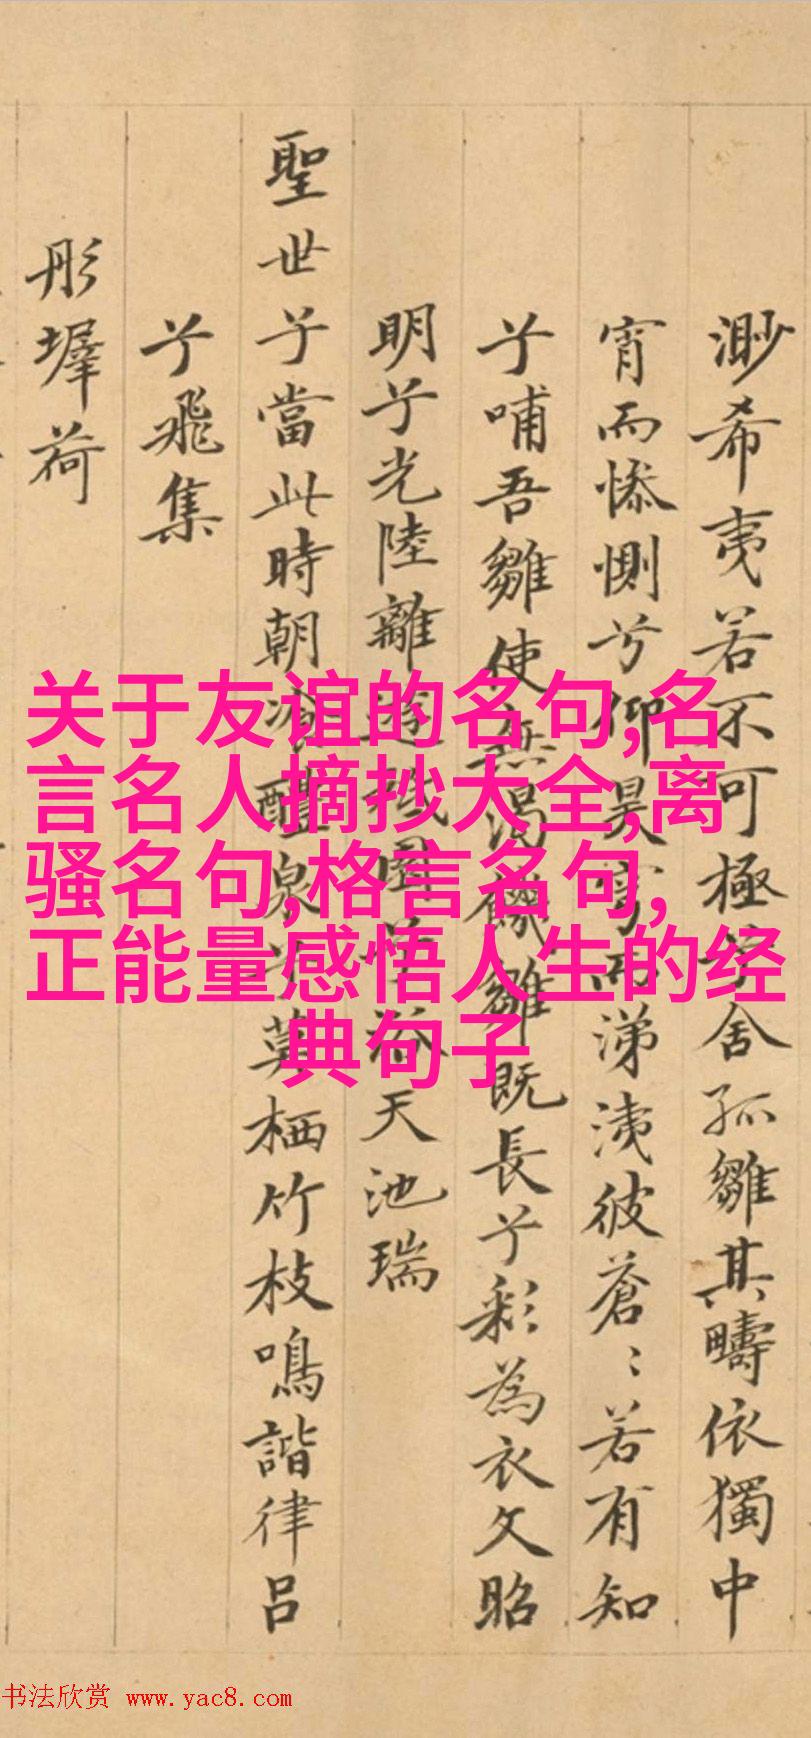 渺希夷若不可極兮舍孤雛其疇依獨中
宵而慘惻兮仰昊穹而涕洟彼蒼〻若有知
兮哺吾雛使無渴饑雛既長兮彩為衣文昭
明兮光陸離遊圃兮浴天池瑞
聖世兮當此時朝醴泉兮莫栖竹枝鳴諧律呂
兮飛集
彤墀荷
关于友谊的名句,名
言名人摘抄大全,离
骚名句,格言名句,
正能量感悟人生的经
典句子
书法欣赏 www.yac8.com